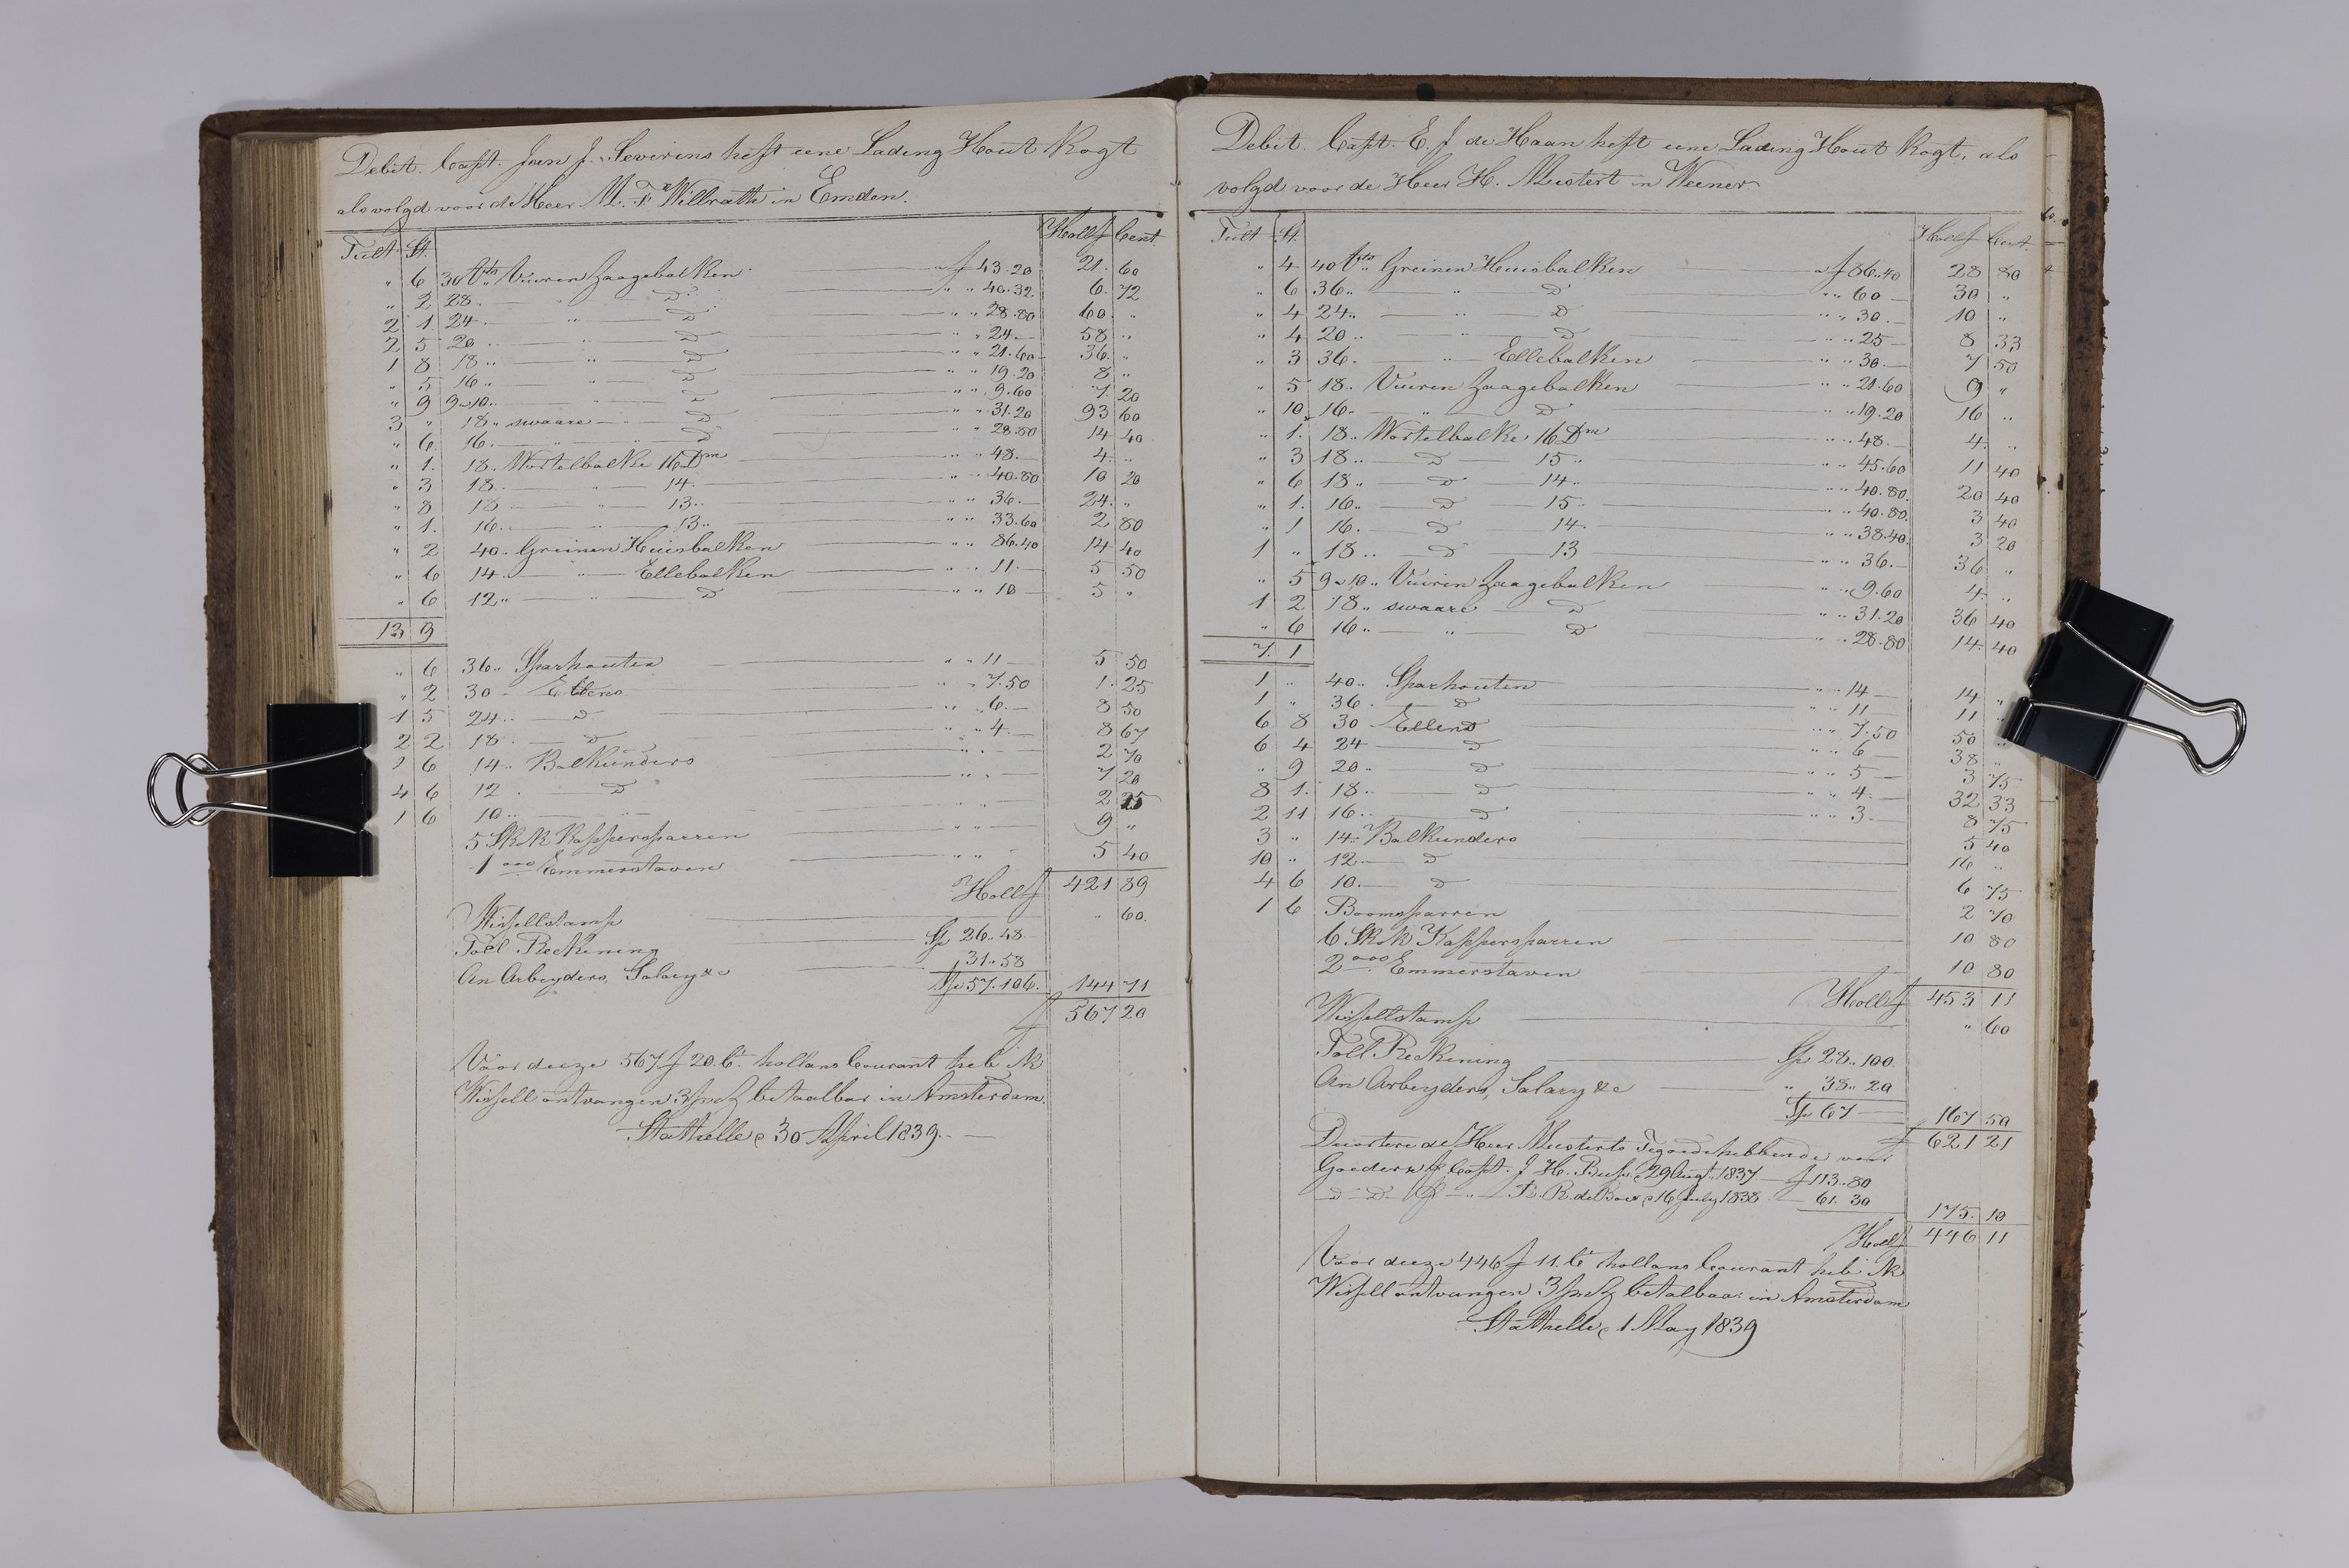 Debit. Capt. Jan J. Severins heft eene Lading Hout kogt
als volgd voor de Heer M. F. Willrath in Emden.
Tult St. Hollf Cent.
" 6 30 Vts Vuiren Zaagebalken " f 43.20 21. 60
" 2 28 " " Do " " 40.32 6. 72
2 1. 24 " D " " 28.80 60. "
2 5 20 " " D " " 24 58 "
1 8 18 " " D " " 21.60 36. "
" 5 16 " " D " " 19.20 8 "
" 9 9 a 10 " " D " " 9.60 7. 20
3 " 18 " swaare " D " " 31.20 93 60
" 6 16. " " D " " 28.80 14 40
" 1. 18. Wortelbalke 16 Dm " " 48. 4. "
" 3 18. " 14. " " 40.80 10 20
" 8 18 " 13. " " 36. 24. "
" 1. 16. " 13. " " 33.60 2 80
" 2 40. Greinen Huisbalken " " 86.40 14 40
" 6 14. " Ellebalken " " 11. 5 50
" 6 12 " " D " " 10 5 "
13 9
" 6 36. Sparhouten " " 11 5 50
" 2 30 Ellens " " 7.50 1. 25
1 5 24. D " " 6. 8 50
2 2 18. D " " 4. 8 67
1 6 14. Balkunders " " 2 70
4 6 12. D 7 20
1 6 10. " " " 2 25
5 Skok Kappersparren " " 9 "
1000 Emmerstaven " " 5 40
Hollf 421 89
Wissellstamp " 60.
Toll Reckening Sp 26. 48
An Arbeyders, Salary &c 31. 58
Sp 57. 106. 144 71
f 567 20
Voor deeze 567 f 20 Ct. hollans Courant heb ik
Wissell ontvangen betaalbar in Amsterdam.
Stathelle 30 April 1839.
Debit. Capt. E. J de Haan heft eene Lading Hout kogt, als
volgd voor de Heer H. Mustert in Weener
Tult St. Hollf Cent.
" 4 40 Vts Greinen Huisbalken " f 86.40 28 80
" 6 36 " " D " " 60 30 "
" 4 24 " " D " " 30. 10 "
" 4 20 " " D " " 25 8 33
" 3 36. " Ellebalken " " 30. 7 50
" 5 18. Vuiren Zaagebalken " " 21.60 9 "
" 10 16. " D " " 19.20 16 "
" 1. 18. Wortelbalke 16 Dm " " 48. 4. "
" 3 18. D 15. " " 45.60 11 40
" 6 18. D 14. " " 40.80. 20 40
" 1. 16. D 15. " " 40.80. 3 40
" 1 16. D 14. " " 38.40. 3 20
1 " 18. D 13 " " 36. 36 "
" 5 9 a 10. Vuiren Zaagebalken " " 9.60 4. "
1 2 18. swaare D " " 31.20 36 40
" 6 16. " D " " 28.80 14. 40
7. 1
1 " 40. Sparhouten " " 14 14 "
1 " 36. D " " 11 11 "
6 8 30 Ellens " " 7.50 50 "
6 4 24 D " " 6 38 "
" 9 20. D " " 5 3 75
8 1. 18. D " " 4. 32 33
2 11 16. D " " 3. 8 75
3 " 14. Balkunders 5 40
10 " 12. D 16 "
4 6 10. D 6 75
1 6 Boomsparren 2 70
6 Skok Kappersparren 10 80
2000 Emmerstaven 10 80
Hollf 453 11
Wissellstamp " 60
Toll Reckening Sp 28. 100.
An Arbeyders, Salary &c " 38. 20
Sp 67 167 50
f 621 21
de Heer Musterts Tegoedehebbende voor
Goederen p Capt. J H. 29 Augt. 1837 f 113. 80
D D. p " R. R. de Boer 16 July 1838 61. 30
175. 10
Hollf 446 11
Voor deeze 446 f 11. Ct hollans Courant heb ik
Wissell ontvangen betalbaar in Amsterdam
Stathelle 1 May 1839